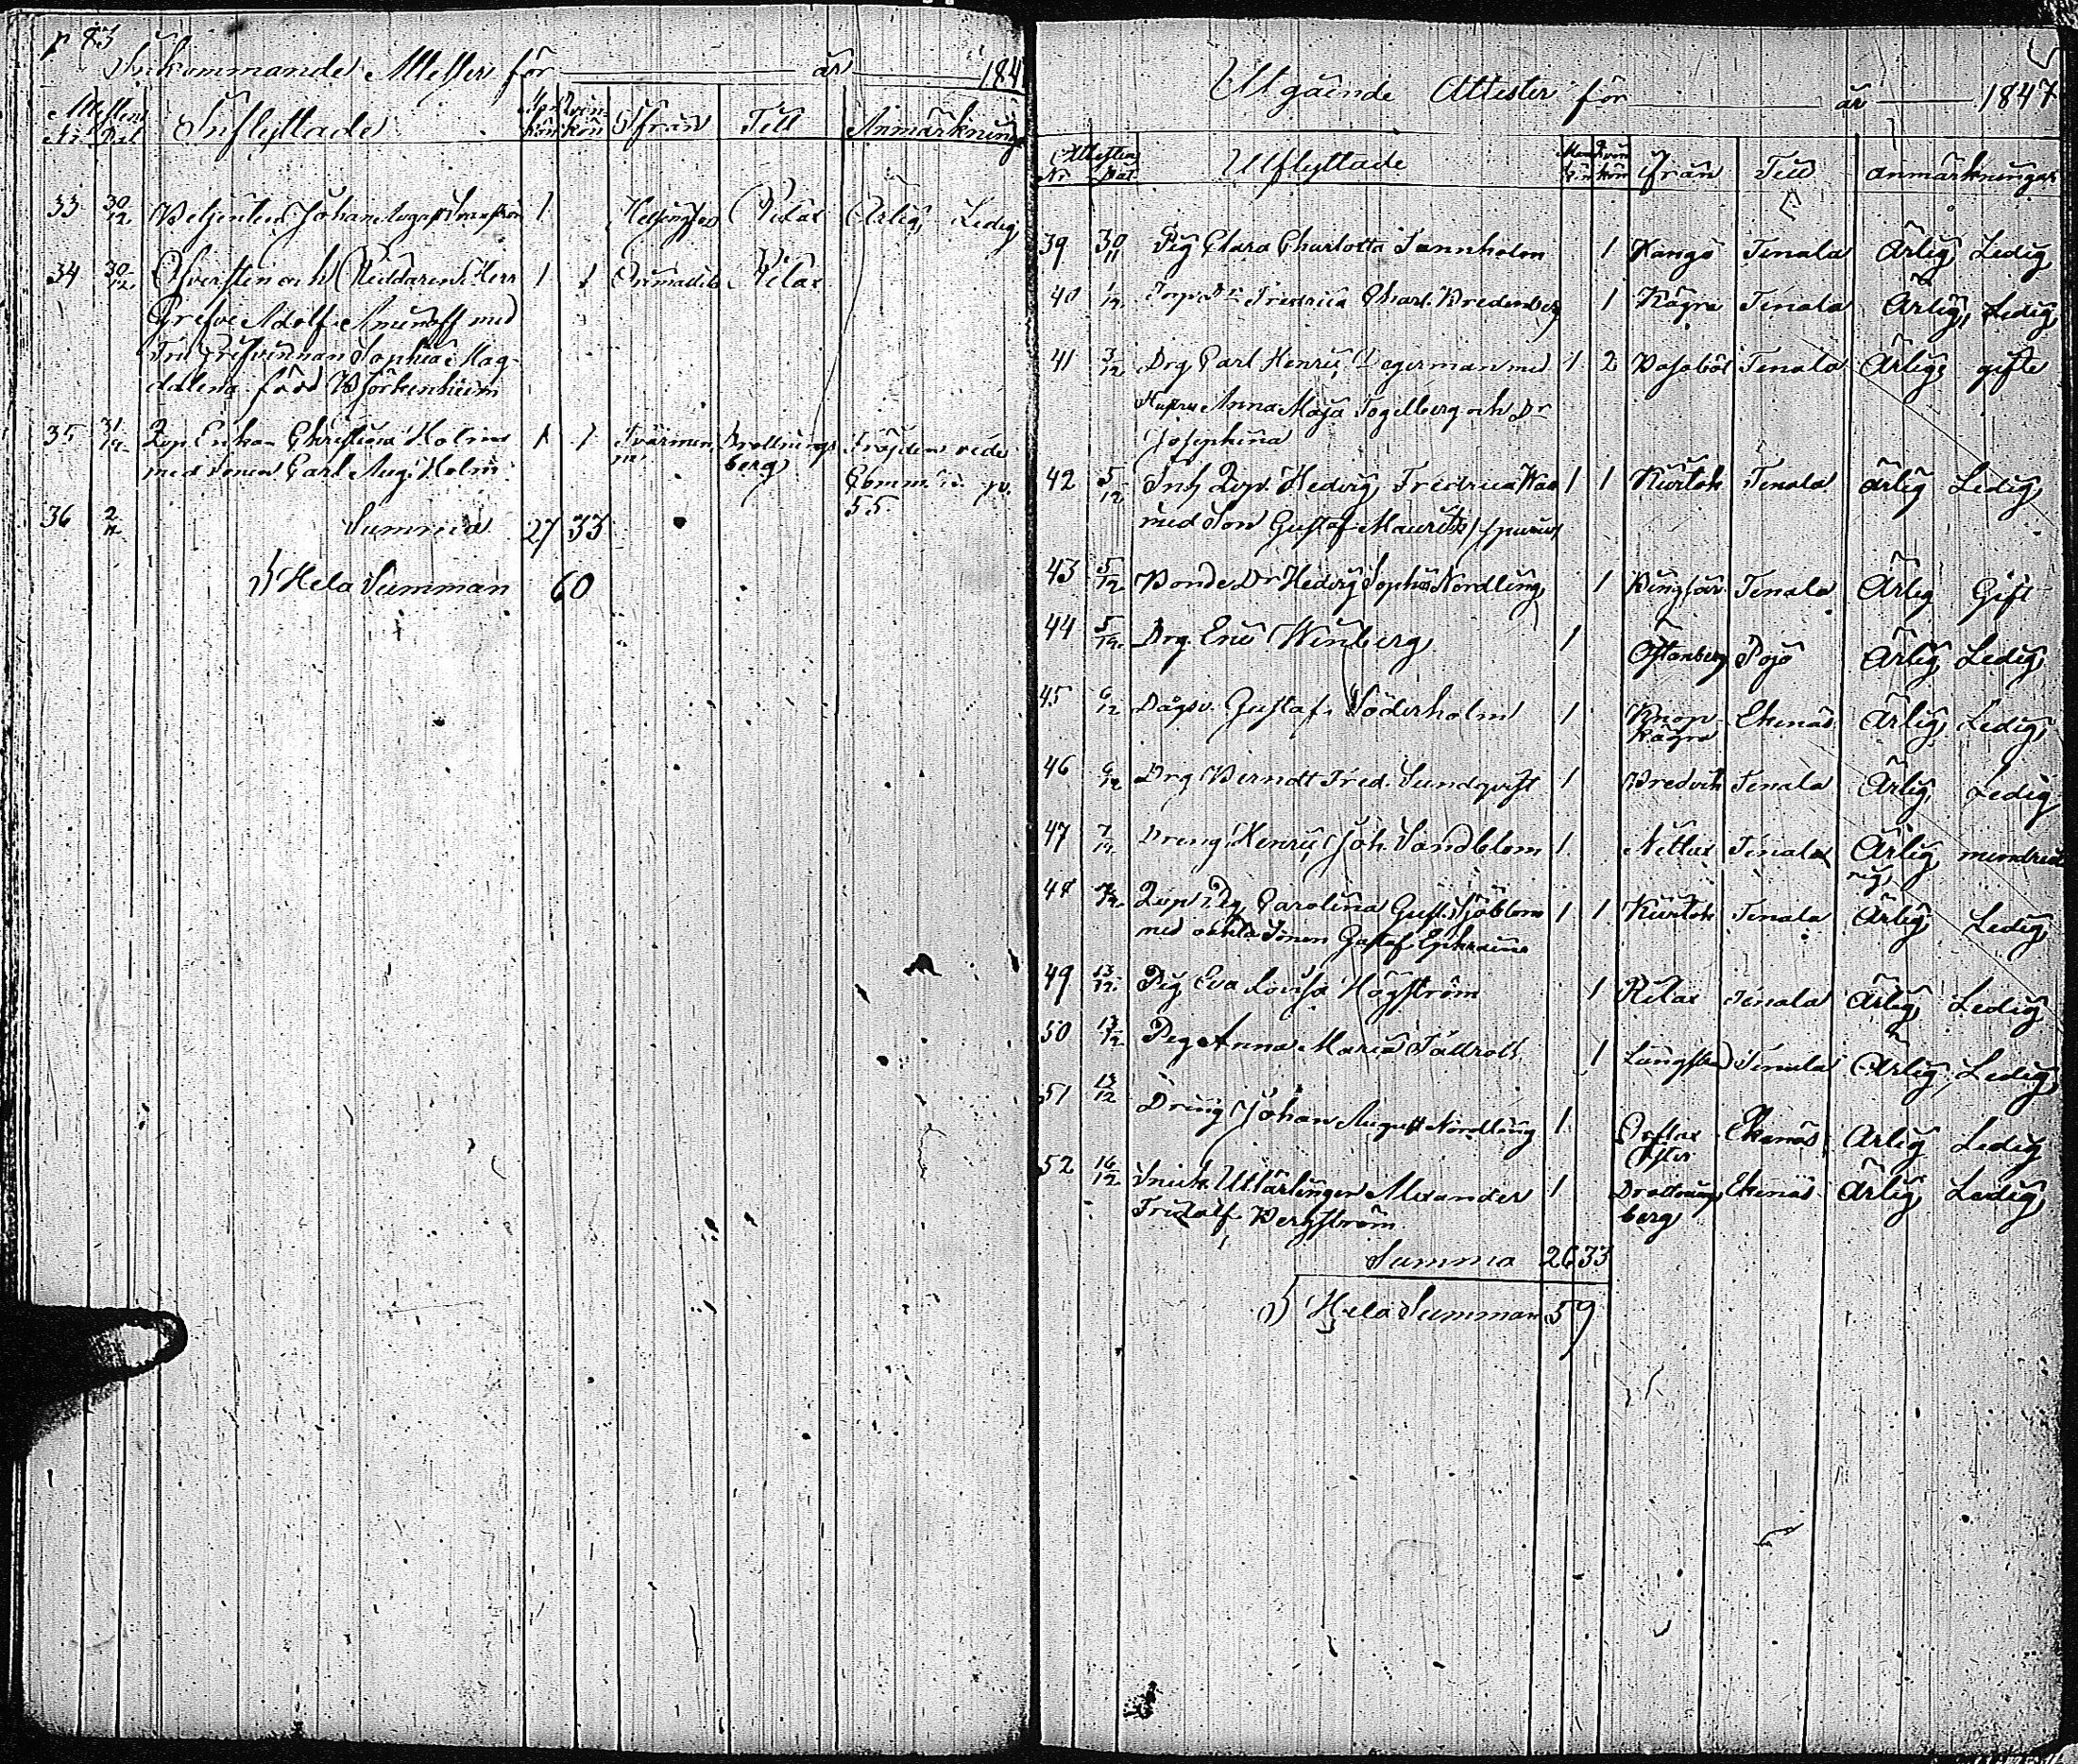 p 83
Inkommande Attester för år 184
Attestens Inflyttade Man kön Qvin- kön Ifrån Till Anmärkning
Nr Dat
33 30/12 Betjenten Johan August 1 Helsingfors Rilax Ärlig, Ledig
34 30/12 Öfversten och Riddaren Herr 1 1 Rilax
Grefve Adolf Aminoff med
Fru Grefvinnan Sophia Mag-
dalena född Björkenheim
35 31/12 Enkan Christina Holm 1 1 Tvärmin Drottnings
med Sonen Carl Aug. Holm ne berg
55
36 2/12 Summa 27 33
Hela Summan 60
Utgående Attester för år 1847
Attestens Utflyttade Man kön Qvin kön Ifrån Till Anmärkningar
Nr Dat
39 30/11 Pig Clara Charlotta Tennholm 1 Hangö Tenala Ärlig, Ledig
40 1/12 Fredrica Charl. Bredenberg 1 Rågra Tenala Ärlig, Ledig
41 3/12 Drg Carl Henric Degerman med 1 2 Basaböl Tenala Ärlig, gifte
Hustru Anna Maja Fogelberg och Dr
Josephina
42 5/12 Inh Hedvig Fredrica 1 1 Tenala Ärlig Ledig
med Son Gustaf Maurits
43 5/12 Bonde Dr Hedvig Sophia Nordling 1 Tenala Ärlig Gift
44 5/12 Drg Eric Winberg 1 Östanberg Pojo Ärlig, Ledig
45 6/12 Dagsv. Gustaf Söderholm 1 Knop- Ekenäs Ärlig, Ledig
kägra
46 6/12 Drg Berndt Fred. Sundqvist 1 Bredvik Tenala Ärlig, Ledig
47 7/12 Dreng Henric Joh. Sandblom 1 Tenala Ärlig,
48 7/12 Pig Carolina Gust. Sjöblom 1 1 Tenala Ärlig Ledig
med oäkta Sonen Gustaf Ephraim
49 13/12 Pig Eva Lovisa Högström 1 Rilax Tenala Ärlig Ledig
50 13/12 Pig Anna Maria Tallroth 1 Tenala Ärlig, Ledig
51 13/12 Dreng Johan August Nordling 1 Ekenäs Ärlig Ledig
52 16/12 Snick. Utlärlingen Alexander 1 Drottnings Ekenäs Ärlig, Ledig
Fridolf Bergström berg
Summa 26 33
Hela Summan 59